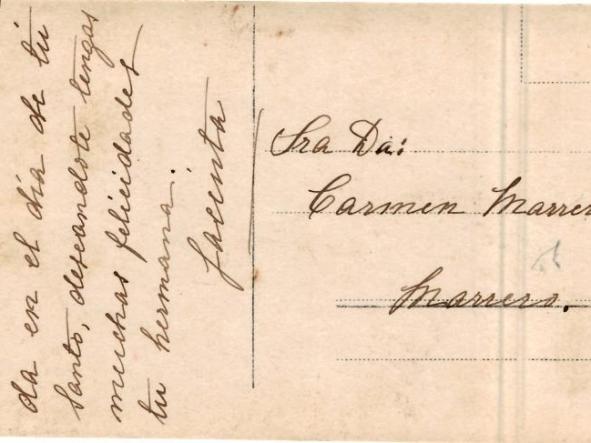 da en el día de tu
Santo, deseandote tengas
muchas felicidades
tu hermana.
Jacinta
Sra Da:
Carmen Marrer
Marrero.